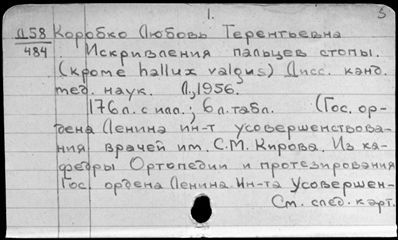 1. 3
Д58 Коробко Любовь Терентьевна
484 Искривления пальцев стопы.
(кроме hallux valgus) Дисс. канд.
мед. наук. Л., 1956.
176 л. с илл.; 6 л. табл. (Гос. ор-
дена Ленина ин-т усовершенствова-
ния врачей им. С.М. Кирова. Из ка-
федры Ортопедии и протезирования
Гос. ордена Ленина Ин-та Усовершен-
См. след. карт.